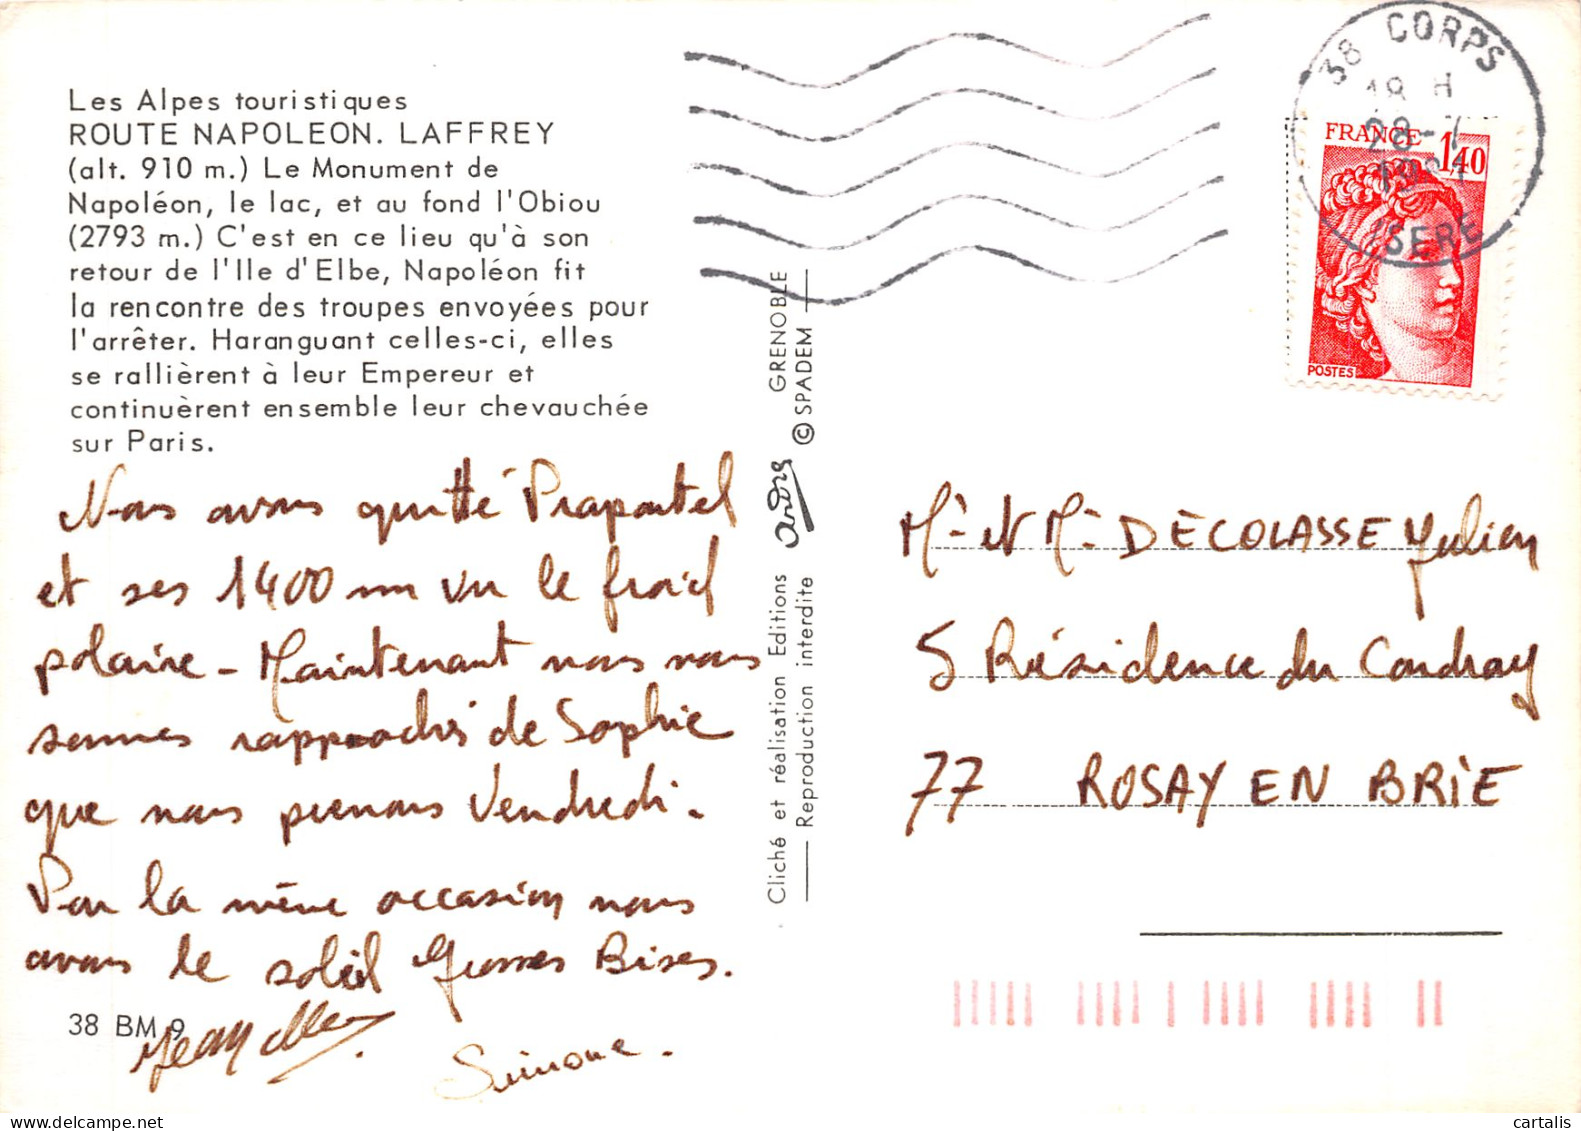 Les Alpes touristiques
ROUTE NAPOLEON. LAFFREY
(alt. 910 m.) Le Monument de
Napoléon, le lac, et au fond l'Obiou
(2793 m.) C'est en ce lieu qu'à son
retour de l'Ile d'Elbe, Napoléon fit
la rencontre des troupes envoyées pour
l'arrêter. Haranguant celles-ci, elles
se rallièrent à leur Empereur et
continuèrent ensemble leur chevauchée
sur Paris.
Nous avons quitté Prapoutel
et ses 1400 m vu le froid
polaire - Maintenant nous nous
sommes rapprochés de Sophie
que nous prenons Vendredi.
Par la même occasion nous
avons le soleil Grosses Bises.
38 BM 9
Simone.
Cliché et réalisation Editions André GRENOBLE
Reproduction interdite © SPADEM
38 CORPS
18 H
28-7
ISERE
FRANCE 1,40
POSTES
Mr et Me DECOLASSE Julien
5 Résidence du Coudray
77 ROSAY EN BRIE
cartalis